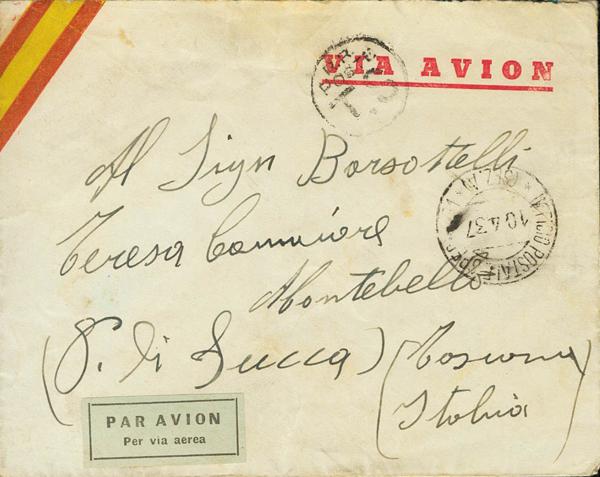 VIA AVION
Al Sign Borsottelli
Teresa Camaiore
Montebello
(P. di Lucca) (Toscana
Italia)
UFFICIO POSTALE SPECIALE
10.4.37
PAR AVION
Per via aerea